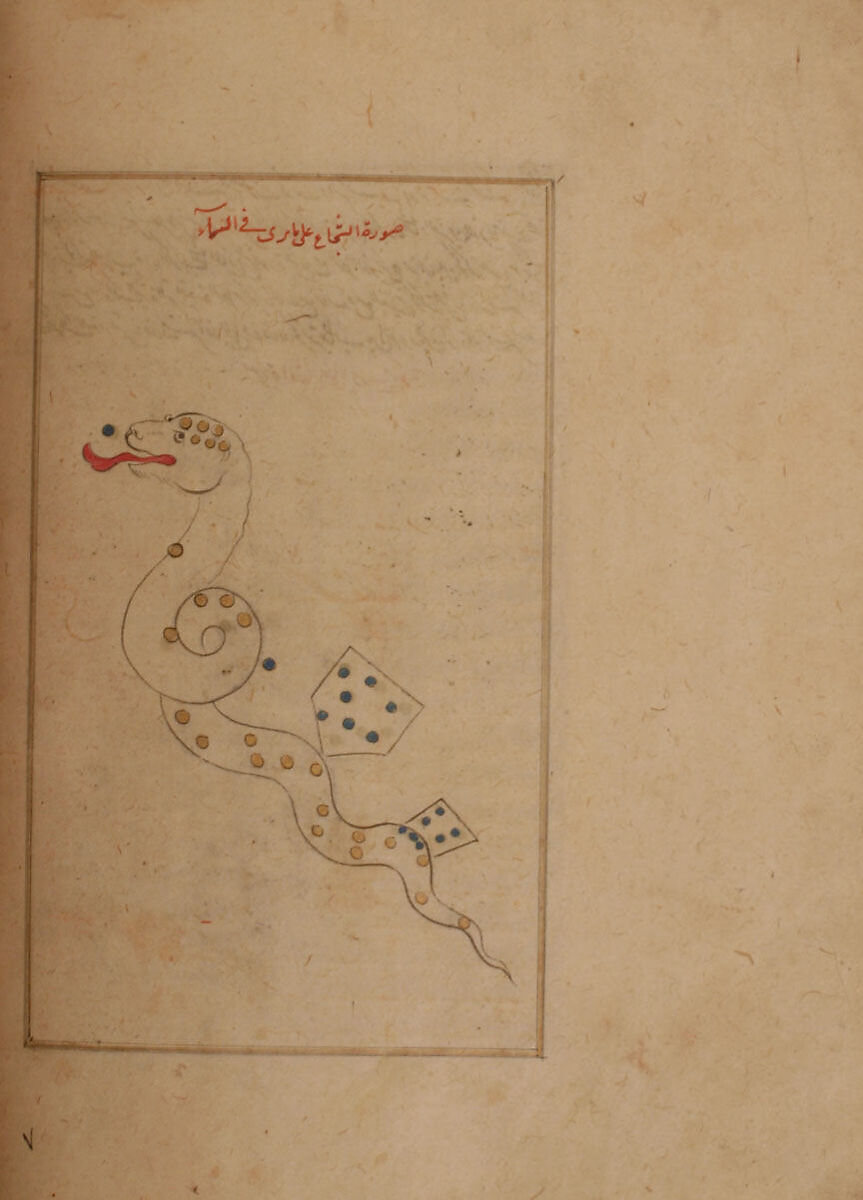 صورة الشجاع علی ما یری فی السماء
٧